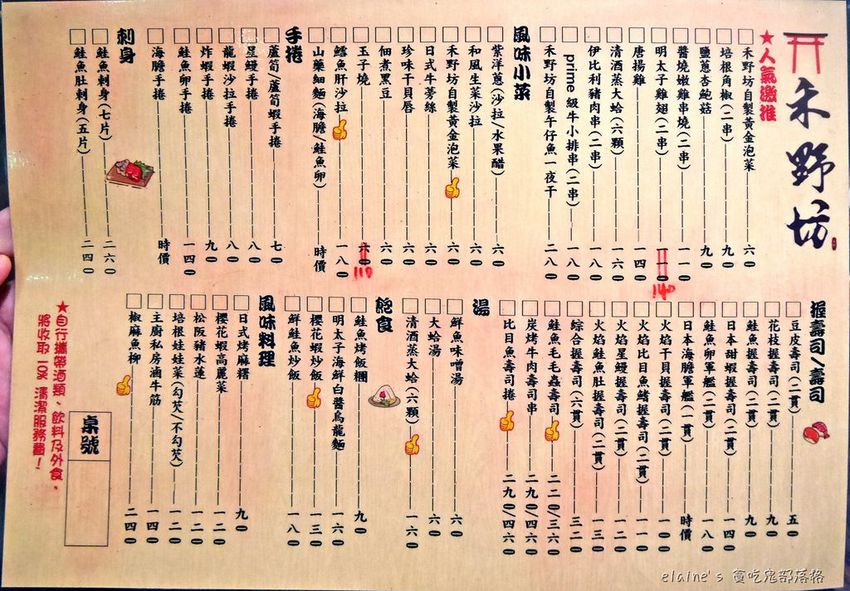 禾野坊
★人氣激推
禾野坊自製黃金泡菜 六0
培根角椒(二串) 九0
鹽蔥杏鮑菇 九0
醬燒嫩雞串燒(二串) 一一0
明太子雞翅(二串) 一一0 140
唐揚雞 一四0
清酒蒸大蛤(六顆) 一六0
伊比利豬肉串(二串) 一八0
prime級牛小排串(二串) 一八0
禾野坊自製午仔魚一夜干 二八0
風味小菜
紫洋蔥(沙拉/水果醋) 六0
和風生菜沙拉 六0
禾野坊自製黃金泡菜 六0
日式牛蒡絲 六0
珍味干貝唇 六0
佃煮黑豆 六0
玉子燒 六0 110
鱈魚肝沙拉 一八0
山藥細麵(海膽/鮭魚卵) 時價
手捲
蘆筍/蘆筍蝦手捲 七0
星鰻手捲 八0
龍蝦沙拉手捲 八0
炸蝦手捲 九0
鮭魚卵手捲 一四0
海膽手捲 時價
刺身
鮭魚刺身(七片) 二六0
鮭魚肚刺身(五片) 二四0
握壽司/壽司
豆皮壽司(二貫) 五0
花枝握壽司(二貫) 九0
鮭魚握壽司(二貫) 九0
日本甜蝦握壽司(二貫) 一四0
鮭魚卵軍艦(二貫) 一八0
日本海膽軍艦(一貫) 時價
火焰干貝握壽司(二貫) 一四0
火焰比目魚鰭握壽司(二貫) 一一0
火焰星鰻握壽司(二貫) 一一0
火焰鮭魚肚握壽司(二貫) 一三0
綜合握壽司(六貫) 三二0
鮭魚毛毛蟲壽司 二二0/三六0
炭烤牛肉壽司串 二九0/四六0
比目魚壽司捲 二九0/四六0
湯
鮮魚味噌湯 六0
大蛤湯 六0
清酒蒸大蛤(六顆) 一六0
飽食
鮭魚烤飯糰 九0
明太子海鮮白醬烏龍麵 一六0
櫻花蝦炒飯 一三0
鮮鮭魚炒飯 一八0
風味料理
日式烤麻糬 九0
櫻花蝦高麗菜 一二0
松阪豬水蓮 一二0
培根娃娃菜(勾芡/不勾芡) 一二0
主廚私房滷牛筋 一四0
椒麻魚柳 二四0
★自行攜帶酒類、飲料及外食,
將收取一0% 清潔服務費!
桌號
elaine's 貪吃鬼部落格